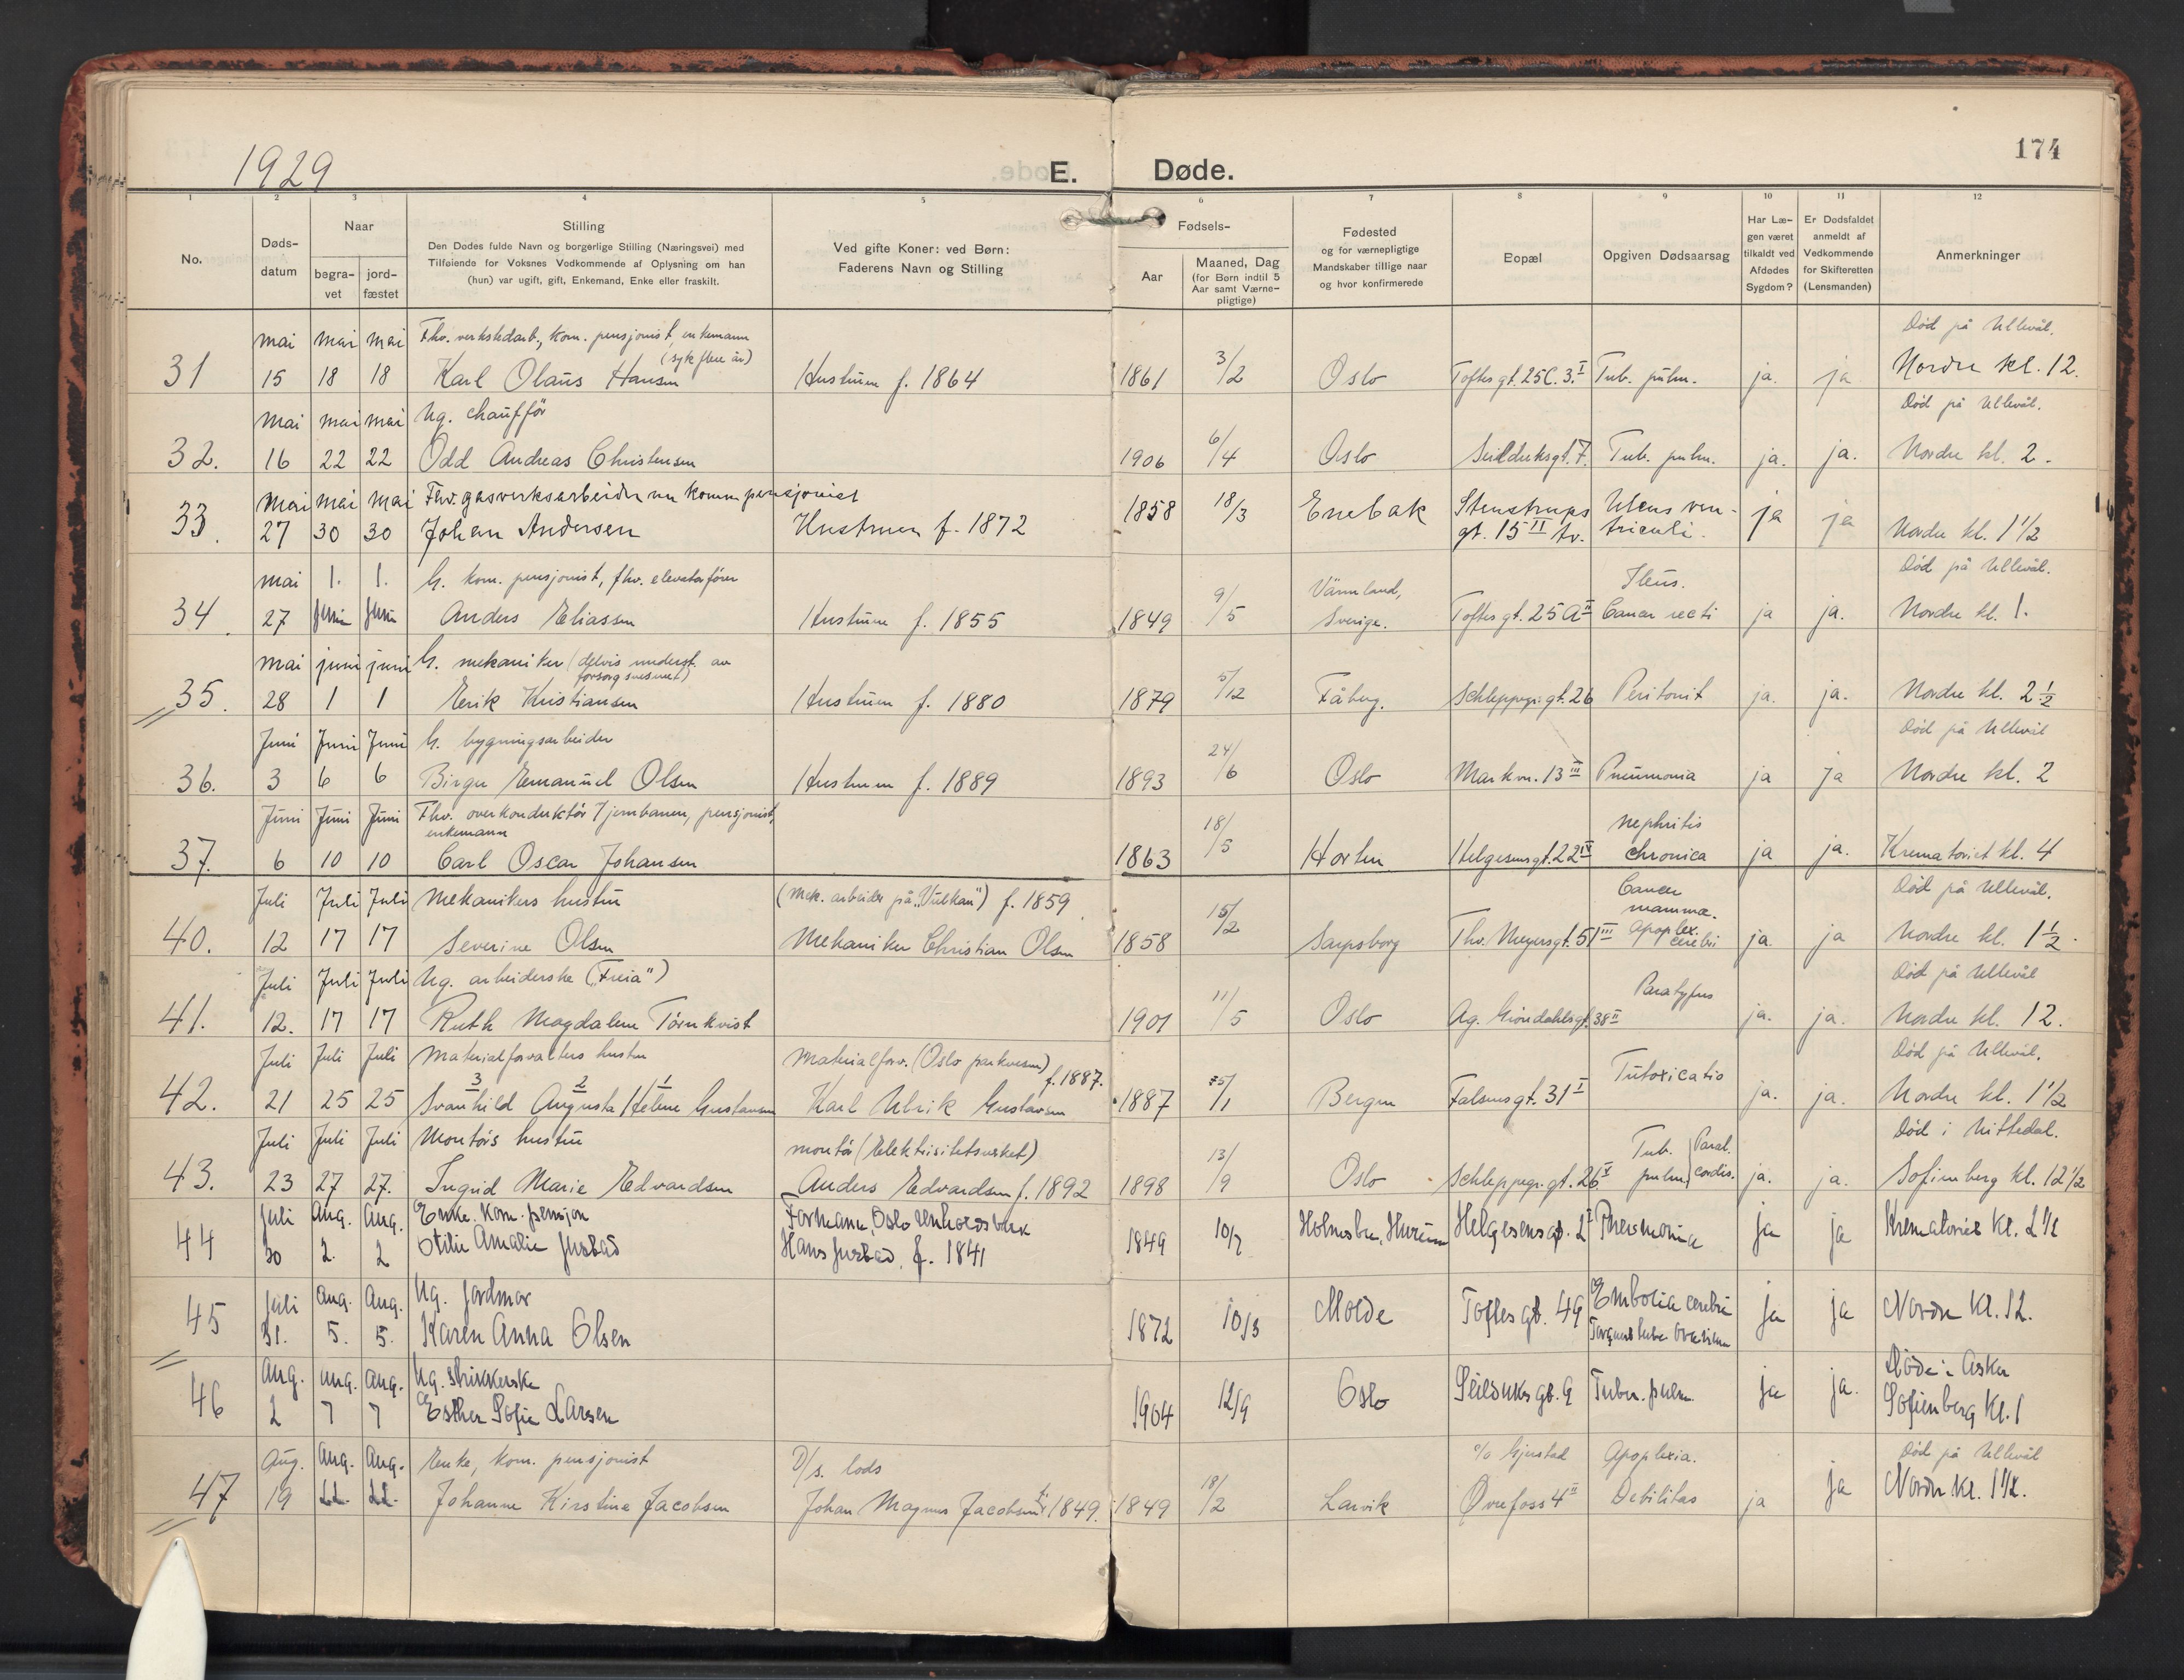 174
1929
E. Døde.
1 2 3 4 5 6 7 8 9 10 11 12
No.
Døds-
datum
Naar
begra-
vet
jord-
fæstet
Stilling
Den Dødes fulde Navn og borgerlige Stilling (Næringsvei) med
Tilføiende for Voksnes Vedkommende af Oplysning om han
(hun) var ugift, gift, Enkemand, Enke eller fraskilt.
Ved gifte Koner: ved Børn:
Faderens Navn og Stilling
Fødsels-
Aar
Maaned, Dag
(for Børn indtil 5
Aar samt Værne-
pligtige)
Fødested
og for værnepligtige
Mandskaber tillige naar
og hvor konfirmerede
Bopæl
Opgiven Dødsaarsag
Har Læ-
gen været
tilkaldt ved
Afdødes
Sygdom?
Er Dødsfaldet
anmeldt af
Vedkommende
for Skifteretten
(Lensmanden)
Anmerkninger
mai mai mai Fhv. verkstedarb., kom. pensjonist, enkemann Død på Ullevål.
(syk flere år)
31 15 18 18 Karl Olaus Hansen Hustruen f. 1864 1861 3/2 Oslo Toftes gt. 25C. 3. I Tub. pulm. ja. ja Nordre kl. 12.
mai mai mai Ug. chauffør Død på Ullevål.
32. 16 22 22 Odd Andreas Christensen 1906 6/4 Oslo Seilduksgt. 7. Tub. pulm. ja. ja. Nordre kl. 2.
Mai mai mai Fhv. gasverksarbeider nu komm pensjonist
33. 27 30 30 Johan Andersen Hustruen f. 1872 1858 18/3 Enebak Stenstrups Ulcus ven- ja ja
gt. 15 II tv. triculi. Nordre kl. 1 1/2
mai 1. 1. G. kom. pensjonist, fhv. elevatorfører Värmland, Ileus. Død på Ullevål.
34. 27 juni juni Anders Eliassen Hustruen f. 1855 1849 9/5 Sverige. Toftes gt. 25 A II Cancer recti ja ja. Nordre kl. 1.
mai juni juni G. mekaniker (delvis underst. av
forsorgsvesenet)
35. 28 1 1 Erik Kristiansen Hustruen f. 1880 1879 5/12 Fåberg. Schleppegr. gt. 26 Peritonit ja. ja. Nordre kl. 2 1/2
Juni Juni Juni G. bygningsarbeider Død på Ullevål
36. 3 6 6 Birger Emanuel Olsen Hustruen f. 1889 1893 24/6 Oslo Markvn. 13 III Pneumonia ja ja Nordre kl. 2
Juni Juni Juni Fhv. overkonduktør v/jernbanen, pensjonist, nephritis
enkemann
37. 6 10 10 Carl Oscar Johansen 1863 18/5 Horten Helgesensgt. 22 IV chronica ja ja. Krematoriet kl. 4
Juli Juli Juli Mekanikers hustru (mek. arbeider på "Vulkan") f. 1859 Cancer Død på Ullevål.
mammæ.
40. 12 17 17 Severine Olsen Mekaniker Christian Olsen 1858 15/2 Sarpsborg Thv. Meyersgt. 51 III apoplex. cerebri ja. ja Nordre kl. 1 1/2.
Juli Juli Juli Ug. arbeiderske ("Freia") Paratyfus Død på Ullevål
41. 12. 17 17 Ruth Magdalene Törnkvist 1901 11/5 Oslo Ag. Gröndahlsgt. 38 II ja. ja. Nordre kl. 12.
Juli Juli Juli Materialforvalters hustru Materialforv. (Oslo parkvesen) f. 1887. Død på Ullevål.
3 2 1
42. 21 25 25 Svanhild Augusta Helene Gustavsen Karl Ulrik Gustavsen 1887 /1 Bergen Falsensgt. 31 I Intoxicatio ja. ja. Nordre kl. 1 1/2
Juli Juli Juli Montörs hustru montör (Elektrisitetsverket) Tub. Paral. Død i Nittedal.
43. 23 27 27. Ingrid Marie Edvardsen Anders Edvardsen f. 1892 1898 13/9 Oslo Schleppegr. gt. 26 I pulm. cordis. ja. ja. Sofienberg kl. 12 1/2
juli Aug. Aug. Enke. Kom. pensjon Formann, Oslo renholdsverk
44 30 2. 2 Otilie Amalie Justad Hans Justad, f. 1841 1849 10/7 Holmsbu, Hurum Helgesensgt. 2 I Pneumonia ja ja Krematoriet kl. 2 1/2
juli Aug. Aug. Ug. jordmor
45 31. 5. 5. Karen Anna Olsen 1872 10/3 Molde Toftes gt. 49 Embolia cerebri ja ja Nordre kl. 12.
Aug. aug. aug. Ug. strikkerske Døde i Asker
46 2 7 7 Esther Sofie Larsen 1904 12/9 Oslo Seilduks gt. 9 Tuber. pulm. ja ja. Sofienberg kl. 1
Aug. Aug. Aug. Enke, kom. pensjonist D/s. lods c/o Gjerstad Apoplexia. Død på Ullevål
47 19 22. 22. Johanne Kirstine Jacobsen Johan Magnus Jacobsen f. 1849. 1849 18/2 Larvik Øvrefoss 4 II Debilitas ja ja Nordre kl. 1 1/2.